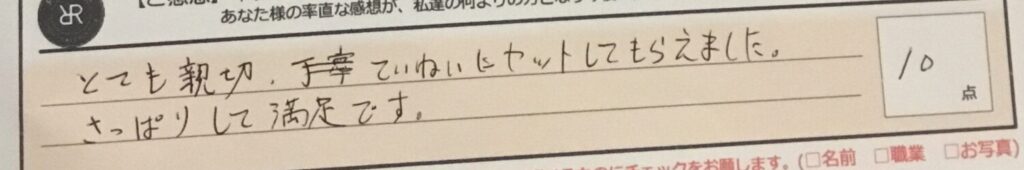 あなた様の率直な感想が、私達の何より
とても親切、ていねいにセットしてもらえました。
さっぱりして満足です。
10
点
チェックをお願します。(□名前 □職業 □お写真)